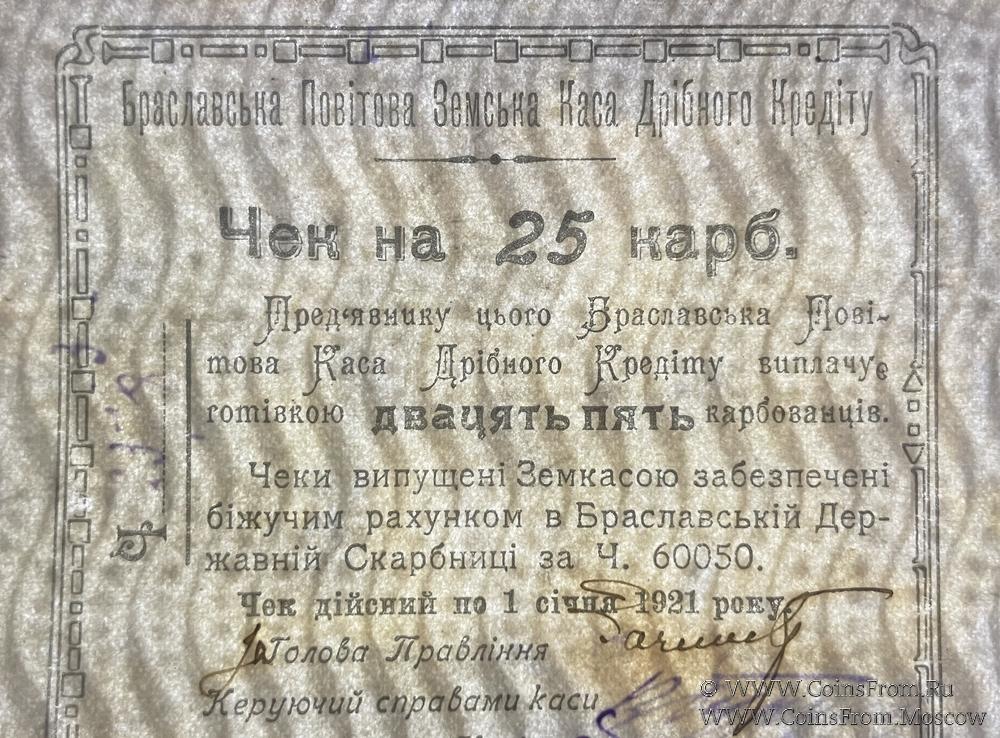 Браславська Повітова Земська Каса Дрібного Кредіту
Чек на 25 карб.
Пред‘явнику цього Браславська Пові-
това Каса Дрібного Кредіту виплачує
готівкою двацять пять карбованців.
Чеки випущені Земкасою забезпечені
біжучим рахунком в Браславській Дер-
жавній Скарбниці за Ч. 60050.
Чек дійсний по 1 січня 1921 року.
Голова Правління
Керуючий справами каси
Ч
© WWW.CoinsFrom.Ru
WWW.CoinsFrom.Moscow